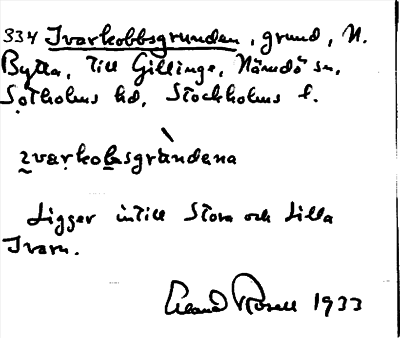 334 Ivarkobbsgrunden, grund, N.
Bytta, till Gillinge, Nämdö sn,
Sotholms hd, Stockholms l.
ivarkobsgrùndena
Ligger intill Stora och Lilla
Ivarn.
Erland Rosell 1933